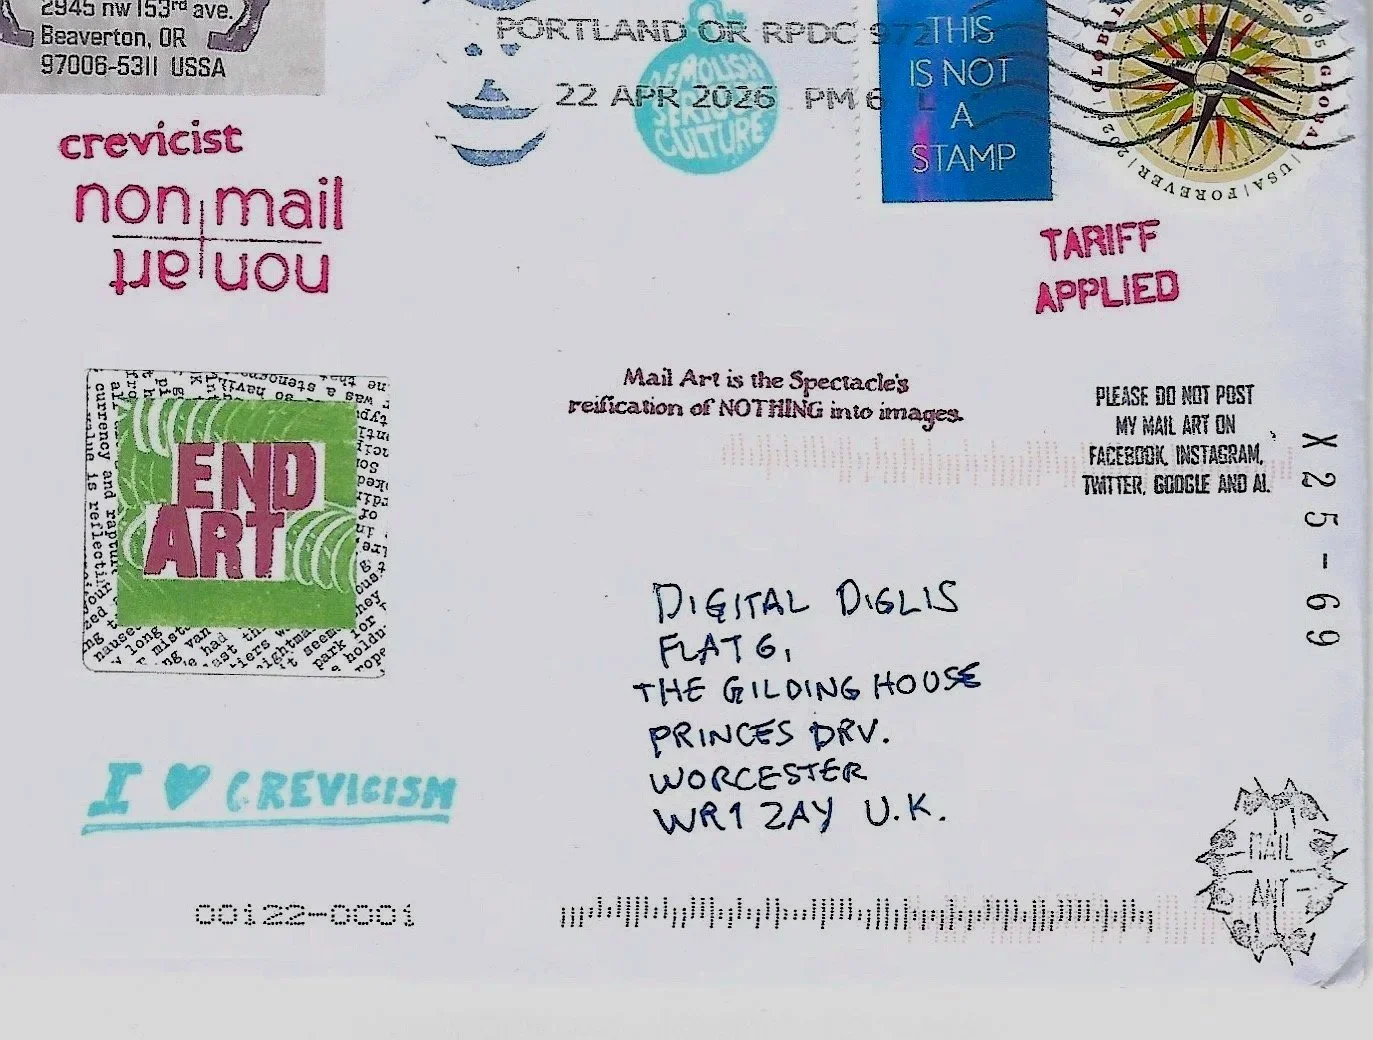 2945 nw 153rd ave.
Beaverton, OR
97006-5311 USSA
PORTLAND OR RPDC 972
22 APR 2026 PM 6 L
DEMOLISH
SERIOUS
CULTURE
THIS
IS NOT
A
STAMP
GLOBAL
USA | FOREVER |
crevicist
non mail
non art
TARIFF
APPLIED
Mail Art is the Spectacle's
reification of NOTHING into images.
PLEASE DO NOT POST
MY MAIL ART ON
FACEBOOK, INSTAGRAM,
TWITTER, GOOGLE AND AI.
X25-69
END
ART
currency and
value is reflectin
DIGITAL DIGLIS
FLAT 6,
THE GILDING HOUSE
PRINCES DRV.
WORCESTER
WR1 2AY U.K.
I ♥ CREVICISM
MAIL
ANT
00122-0001